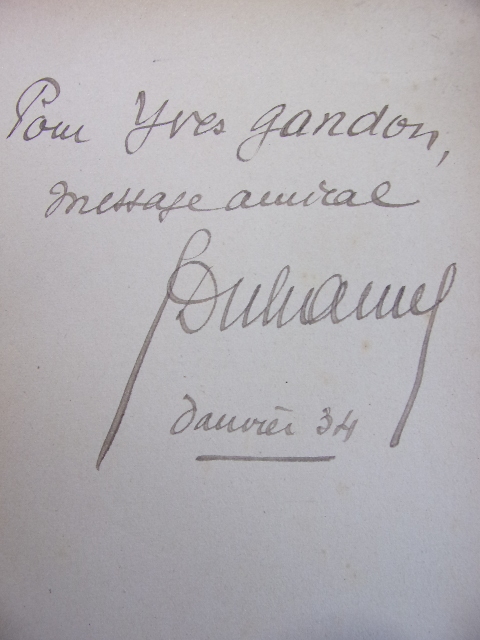 Pour Yves Gandon,
message amical
GDuhamel
Janvier 34